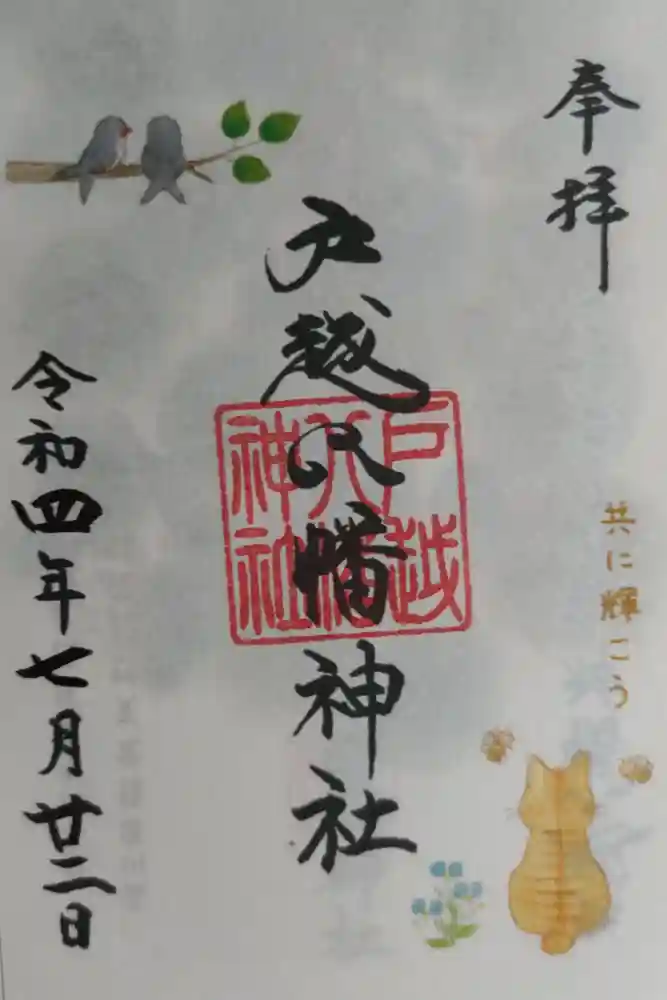 奉拝
共に輝こう
戸越八幡神社
戸越
八幡
神社
令和四年七月廿二日